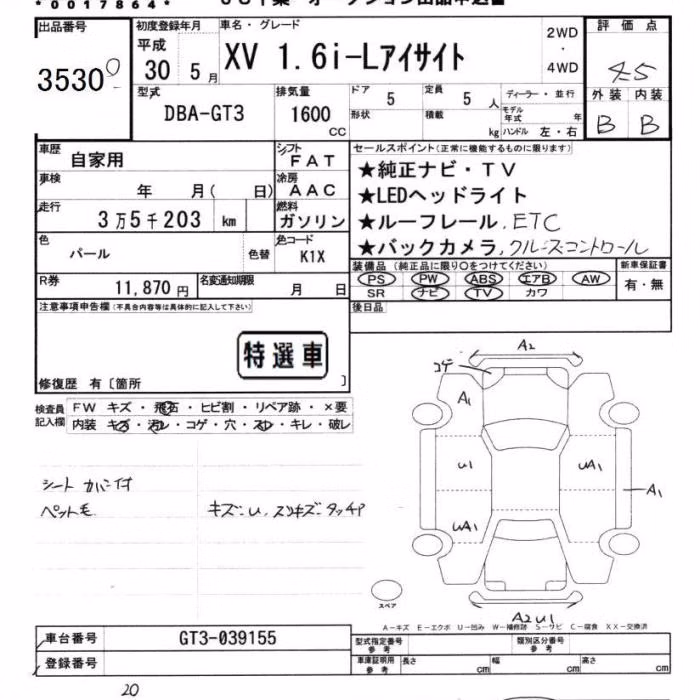 *0017864*
出品番号
35300
初度登録年月
平成
30 5月
車名・グレード
XV 1.6i-Lアイサイト
2WD
・
4WD
評価点
4.5
外装 内装
B B
型式
DBA-GT3
排気量
1600
CC
ドア 5
定員 5人
形状
積載 kg
ディーラー・並行
モデル年式 年
ハンドル 左・右
車歴
自家用
シフト
FAT
車検
年 月( 日)
冷房
AAC
走行
3万5千203 km
燃料
ガソリン
色
パール
色替
色コード
K1X
R券
11,870円
名変通知期限
月 日
セールスポイント(正常に機能するものに限ります)
★純正ナビ・TV
★LEDヘッドライト
★ルーフレール,ETC
★バックカメラ,クルーズコントロール
装備品(純正品に限り○をつけてください)
PS PW ABS エアB AW
SR ナビ TV カワ
新車保証書
有・無
後日品
注意事項申告欄(不具合内容等は具体的に記入して下さい)
特選車
修復歴 有〔箇所 〕
検査員記入欄
FW キズ・飛石・ヒビ割・リペア跡・×要
内装 キズ・汚レ・コゲ・穴・スレ・キレ・破レ
ペット毛
A2
コゲ
A1
U1
UA1
A1
UA1
A2 U1
スペア
A-キズ E-エクボ U-凹み W-補修跡 S-サビ C-腐食 XX-交換済
車台番号
GT3-039155
登録番号
型式指定番号
参考
類別区分番号
参考
車庫証明用
参考
長さ cm
幅 cm
高さ cm
20